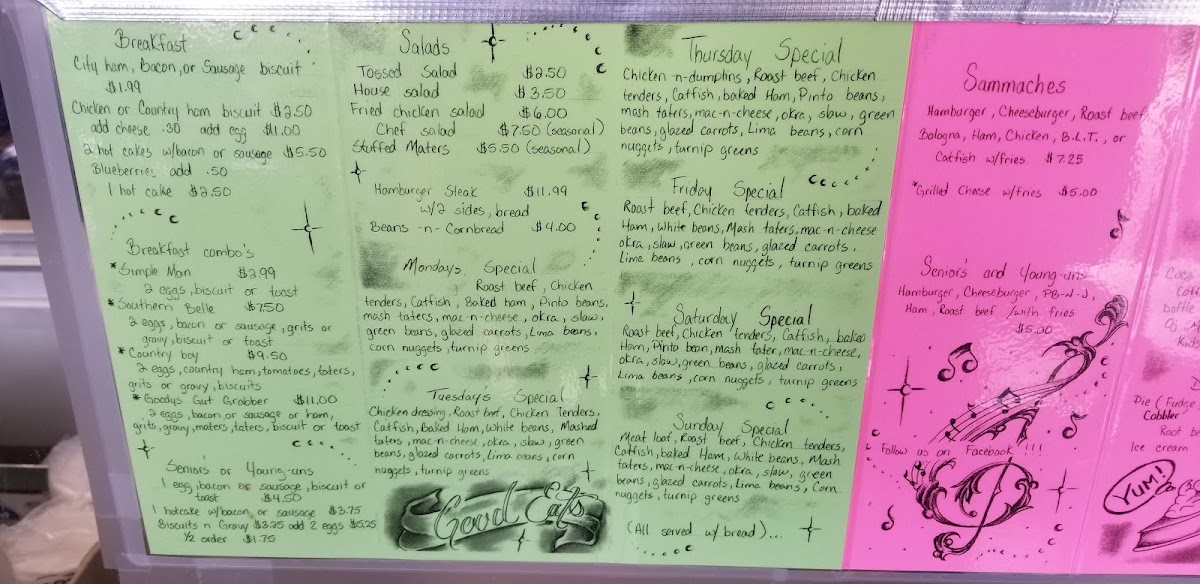 Breakfast
City ham, Bacon, or Sausage biscuit
$1.99
Chicken or Country ham biscuit $2.50
add cheese .30 add egg $1.00
2 hot cakes w/bacon or sausage $5.50
Blueberries add .50
1 hot cake $2.50
Breakfast combo's
*Simple Man $3.99
2 eggs, biscuit or toast
*Southern Belle $7.50
2 eggs, bacon or sausage, grits or
gravy, biscuit or toast
*Country boy $9.50
2 eggs, country ham, tomatoes, taters,
grits or gravy, biscuits
*Goodys Gut Grabber $11.00
2 eggs, bacon or sausage or ham,
grits, gravy, maters, taters, biscuit or toast
Seniors or Young-uns
1 egg, bacon or sausage, biscuit or
toast $4.50
1 hotcake w/bacon or sausage $3.75
Biscuits n Gravy $3.25 add 2 eggs $5.25
1/2 order $1.75
Salads
Tossed Salad $2.50
House salad $3.50
Fried chicken salad $6.00
Chef salad $7.50 (seasonal)
Stuffed Maters $5.50 (seasonal)
Hamburger Steak $11.99
w/2 sides, bread
Beans -n- Cornbread $4.00
Mondays Special
Roast beef, Chicken
tenders, Catfish, Baked ham, Pinto beans,
mash taters, mac-n-cheese, okra, slaw,
green beans, glazed carrots, Lima beans,
corn nuggets, turnip greens
Tuesday's Special
Chicken dressing, Roast beef, Chicken Tenders,
Catfish, Baked Ham, White beans, Mashed
taters, mac-n-cheese, okra, slaw, green
beans, glazed carrots, Lima beans, corn
nuggets, turnip greens
Good Eats
Thursday Special
Chicken -n-dumplins, Roast beef, Chicken
tenders, Catfish, baked Ham, Pinto beans,
mash taters, mac-n-cheese, okra, slaw, green
beans, glazed carrots, Lima beans, corn
nuggets, turnip greens
Friday Special
Roast beef, Chicken tenders, Catfish, baked
Ham, White beans, Mash taters, mac-n-cheese
okra, slaw, green beans, glazed carrots,
Lima beans, corn nuggets, turnip greens
Saturday Special
Roast beef, Chicken tenders, Catfish, baked
Ham, Pinto bean, mash tater, mac-n-cheese,
okra, slaw, green beans, glazed carrots,
Lima beans, corn nuggets, turnip greens
Sunday Special
Meat loaf, Roast beef, Chicken tenders,
Catfish, baked Ham, White beans, Mash
taters, mac-n-cheese, okra, slaw, green
beans, glazed carrots, Lima beans, Corn
nuggets, turnip greens
(All served w/ bread)...
Sammaches
Hamburger, Cheeseburger, Roast beef
Bologna, Ham, Chicken, B.L.T., or
Catfish w/fries $7.25
*Grilled Cheese w/fries $5.00
Senior's and Young-uns
Hamburger, Cheeseburger, PB-N-J,
Ham, Roast beef /with fries
$5.00
Follow us on Facebook !!!
Pie (Fudge
Cobbler
Root be
Ice cream
YUM!